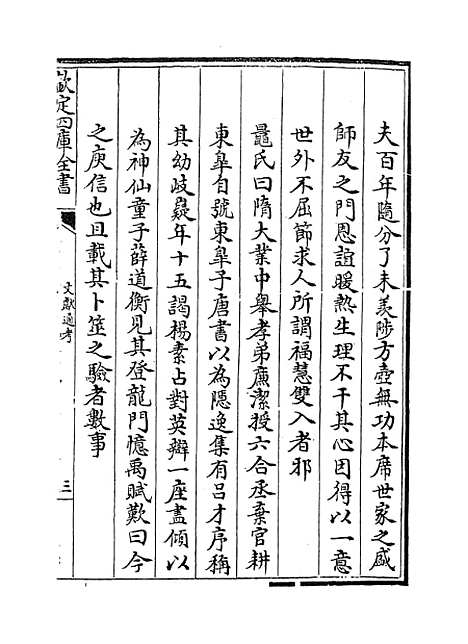 夫百年隨分了未羨陟方壺無功本席世家之盛
師友之門恩誼暖熱生理不干其心因得以一意
世外不屈節求人所謂福慧雙入者邪
鼂氏曰隋大業中舉孝弟廉潔授六合丞棄官耕
東皐自號東皐子唐書以為隱逸集有呂才序稱
其幼岐嶷年十五謁楊素占對英辯一座盡傾以
為神仙童子薛道衡見其登龍門憶禹賦歎曰今
之庾信也且載其卜筮之驗者數事
欽定四庫全書
文獻通考
三